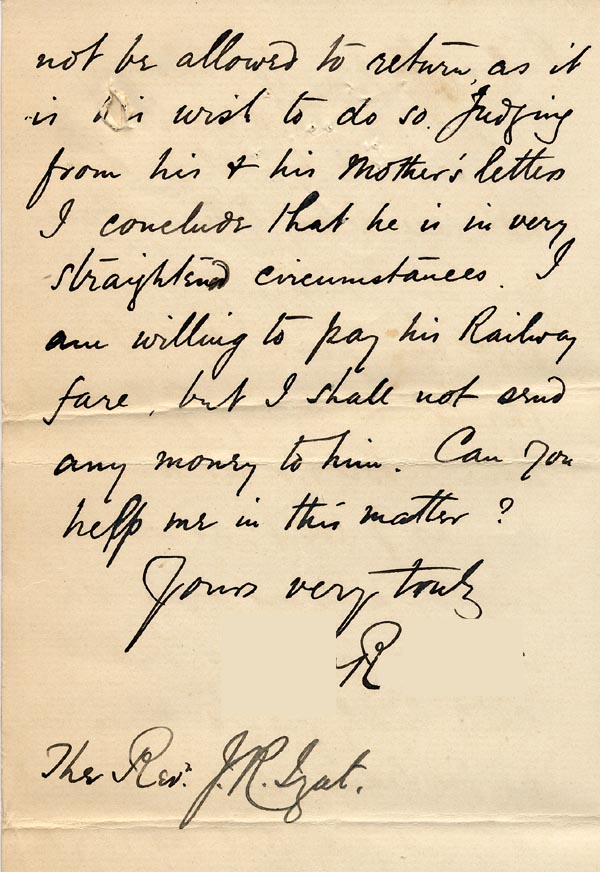 not be allowed to return, as it
is his wish to do so. Judging
from his & his Mother's letters
I conclude that he is in very
straightend circumstances. I
am willing to pay his Railway
fare, but I shall not send
any money to him. Can you
help me in this matter?
Yours very truly
R
The Revd. J. R. Izat.